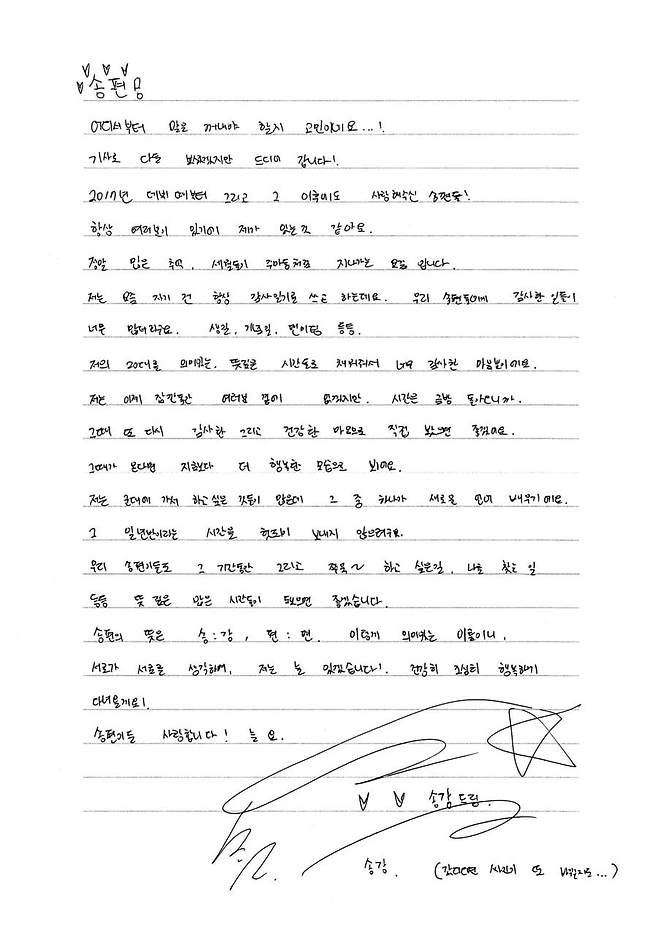 송편💌
어디서부터 말로 꺼내야 할지 고민이네요...!
기사로 다들 보셨겠지만 드디어 갑니다!
2017년 데뷔 때부터 그리고 그 이후에도 사랑해주신 송편들!
항상 여러분이 있기에 제가 있는 것 같아요.
정말 많은 추억, 세월들이 주마등처럼 지나가는 요즘 입니다.
저는 요즘 자기 전 항상 감사일기를 쓰고 하는데요. 우리 송편들에게 감사한 일들이
너무 많더라구요. 생일, 기념일, 팬미팅 등등.
저의 20대를 의미있는, 뜻깊은 시간들로 채워줘서 너무 감사한 마음뿐이에요.
저는 이제 잠깐동안 여러분 곁에 없겠지만. 시간은 금방 돌아오니까.
그때 또 다시 감사한 그리고 건강한 마음으로 직접 봤으면 좋겠어요.
그때가 온다면 지금보다 더 행복한 모습으로 봐요.
저는 군대에 가서 하고싶은 것들이 많은데 그 중 하나가 새로운 언어 배우기에요.
그 일년반이라는 시간을 헛되이 보내지 않으려구요.
우리 송편이들도 그 기간동안 그리고 쭈욱~ 하고 싶은걸, 나를 찾는 일
등등 뜻 깊은 많은 시간들이 됐으면 좋겠습니다.
송편의 뜻은 송:강, 편:편. 이렇게 의미있는 이름이니,
서로가 서로를 생각하며, 저는 늘 있겠습니다! 건강히 조심히 행복하게
다녀올게요!
송편이들 사랑합니다! 늘 요.
송강 드림.
송강. (갔다오면 싸인이 또 바뀔지도...)